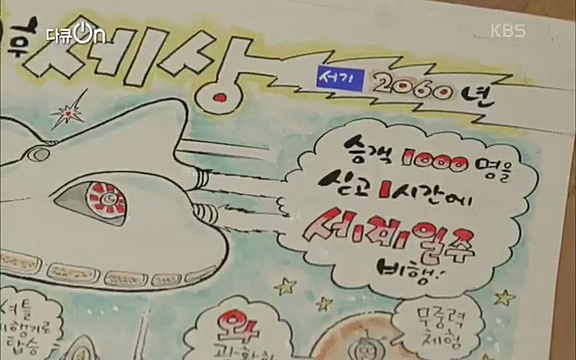 다큐On
KBS
후 세상
서기 2060년
승객 1000 명을
싣고 1시간에
세계일주
비행!
셔틀
비행기로
탑승
와
무중력
체험